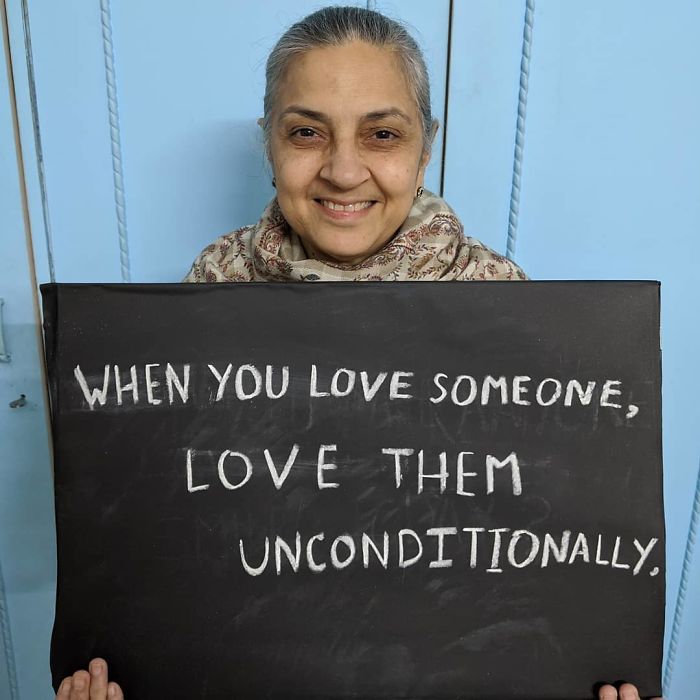 WHEN YOU LOVE SOMEONE,
LOVE THEM
UNCONDITIONALLY.